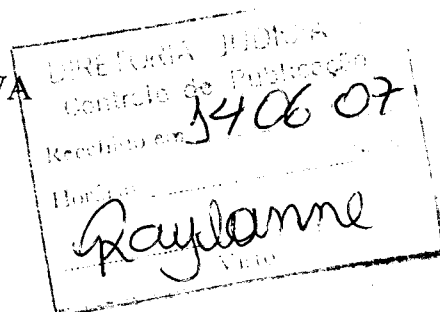 VA
DIRETORIA JUDICIA
Controle de Publicação
Recebido em 14 06 07
Horário
Raylanne
Visto